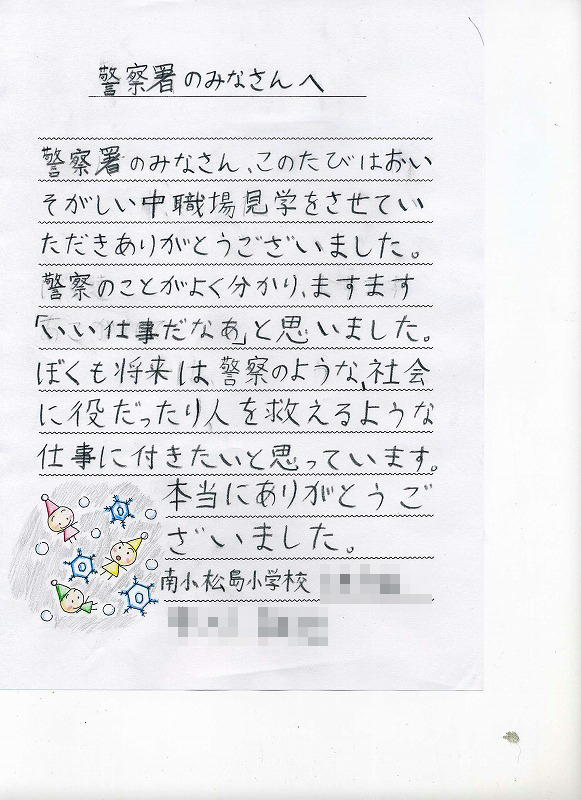 警察署のみなさんへ
警察署のみなさん、このたびはおい
そがしい中職場見学をさせてい
ただきありがとうございました。
警察のことがよく分かり、ますます
「いい仕事だなぁ」と思いました。
ぼくも将来は警察のような、社会
に役だったり人を救えるような
仕事に付きたいと思っています。
本当にありがとうご
ざいました。
南小松島小学校